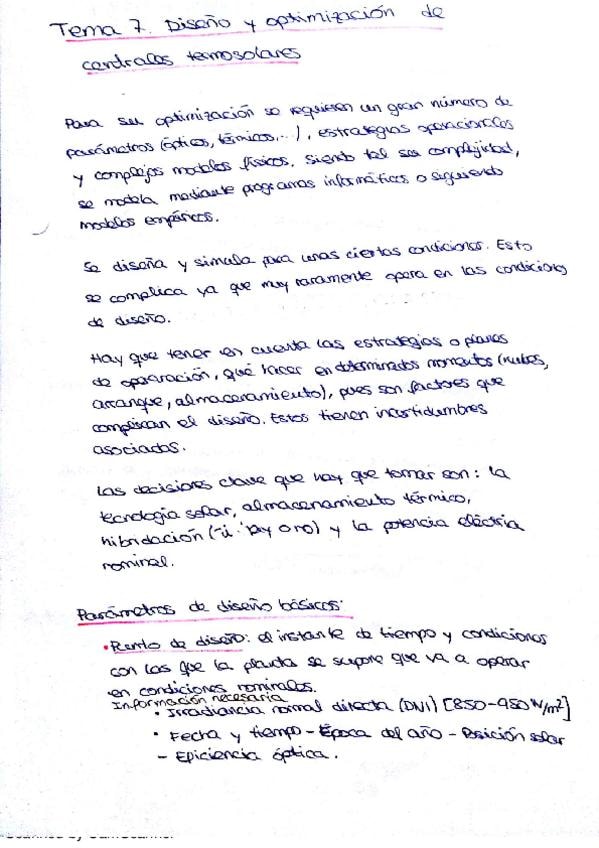 Tema 7. Diseño y optimización de
centrales termosolares
Para su optimización se requieren un gran número de
parámetros (ópticos, térmicos,...), estrategias operacionales
y complejos modelos físicos, siendo tal su complejidad,
se modela mediante programas informáticos o siguiendo
modelos empíricos.
Se diseña y simula para unas ciertas condiciones. Esto
se complica ya que muy raramente opera en las condiciones
de diseño.
Hay que tener en cuenta las estrategias o planes
de operación, qué hacer en determinados momentos (nubes,
arranque, almacenamiento), pues son factores que
complican el diseño. Estos tienen incertidumbres
asociadas.
Las decisiones clave que hay que tomar son: la
tecnología solar, almacenamiento térmico,
hibridación (si hay o no) y la potencia eléctrica
nominal.
Parámetros de diseño básicos:
• Punto de diseño: el instante de tiempo y condiciones
con las que la planta se supone que va a operar
en condiciones nominales.
Información necesaria
• Irradiancia normal directa (DNI) [850-950 W/m²]
• Fecha y tiempo - Época del año - Posición solar
- Eficiencia óptica.